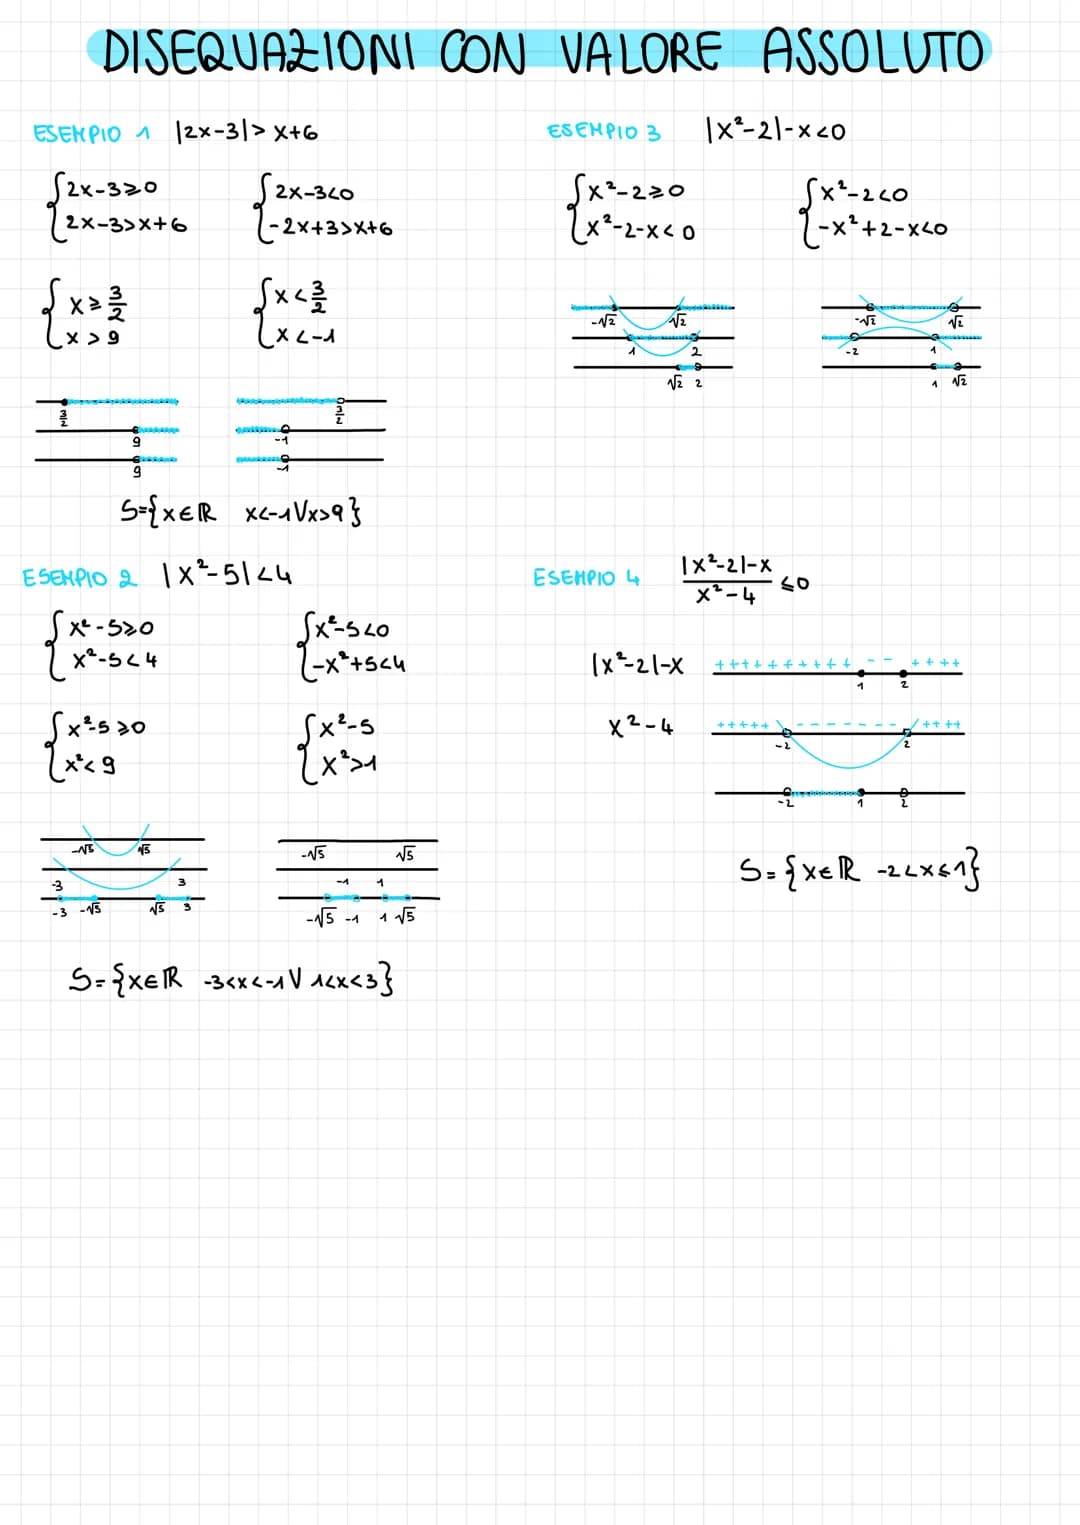 DISEQUAZIONI CON VALORE ASSOLUTO
ESEMPIO 1 |2x-3|> x+6
{2x-3≥0
2x-3>x+6
{2x-3<0
-2x+3>x+6
{x≥3/2
x>9
{x<3/2
x<-1
3/2
9
9
3/2
-1
-1
S={x∈ℝ x<-1Vx>9}
ESEMPIO 2 |x²-5|<4
{x²-5≥0
x²-5<4
{x²-5<0
-x²+5<4
{x²-5≥0
x²<9
{x²-5
x²>1
-√5 √5
-3 3
-3 -√5 √5 3
-√5 √5
-1 1
-√5 -1 1 √5
S={x∈ℝ -3<x<-1 V 1<x<3}
ESEMPIO 3 |x²-2|-x<0
{x²-2≥0
x²-2-x<0
{x²-2<0
-x²+2-x<0
-√2 √2
1 2
√2 2
-√2 √2
-2 1
1 √2
ESEMPIO 4 |x²-2|-x / x²-4 ≤0
|x²-2|-x ++++++++++ -- ++++
1 2
x²-4 +++++ ------- ++++
-2 2
-2 1 2
S={x∈ℝ -2<x≤1}